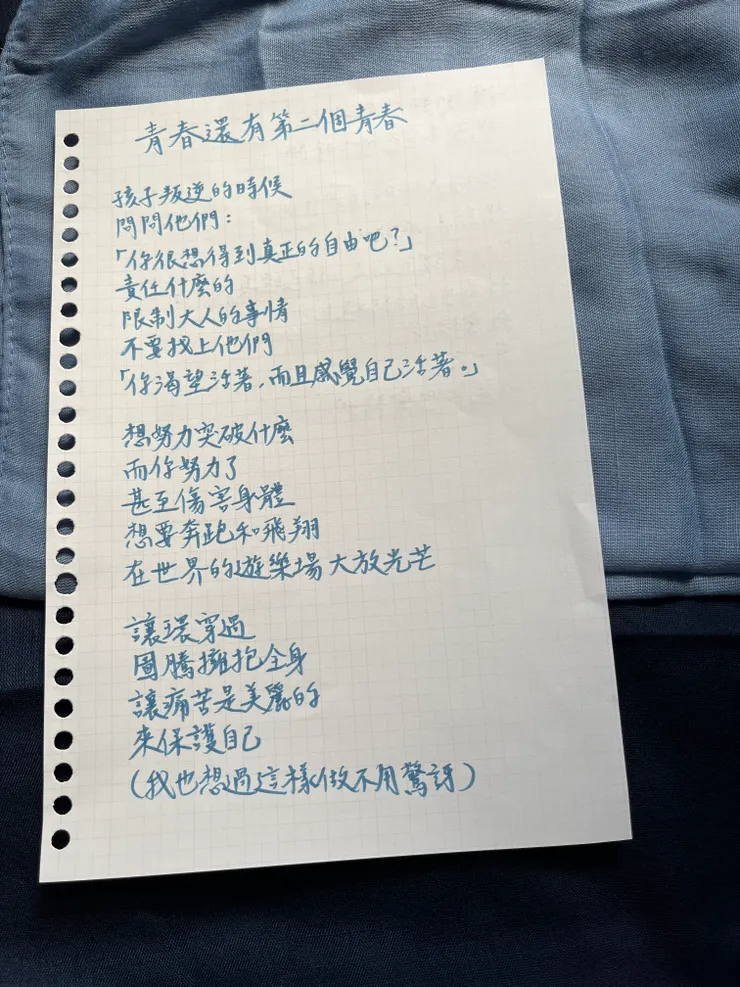 青春還有第二個青春
孩子叛逆的時候
問問他們：
「你很想得到真正的自由吧？」
責任什麼的
限制大人的事情
不要找上他們
「你渴望活著，而且感覺自己活著。」
想努力突破什麼
而你努力了
甚至傷害身體
想要奔跑和飛翔
在世界的遊樂場大放光芒
讓環穿過
圖騰擁抱全身
讓痛苦是美麗的
來保護自己
（我也想過這樣做不用驚訝）